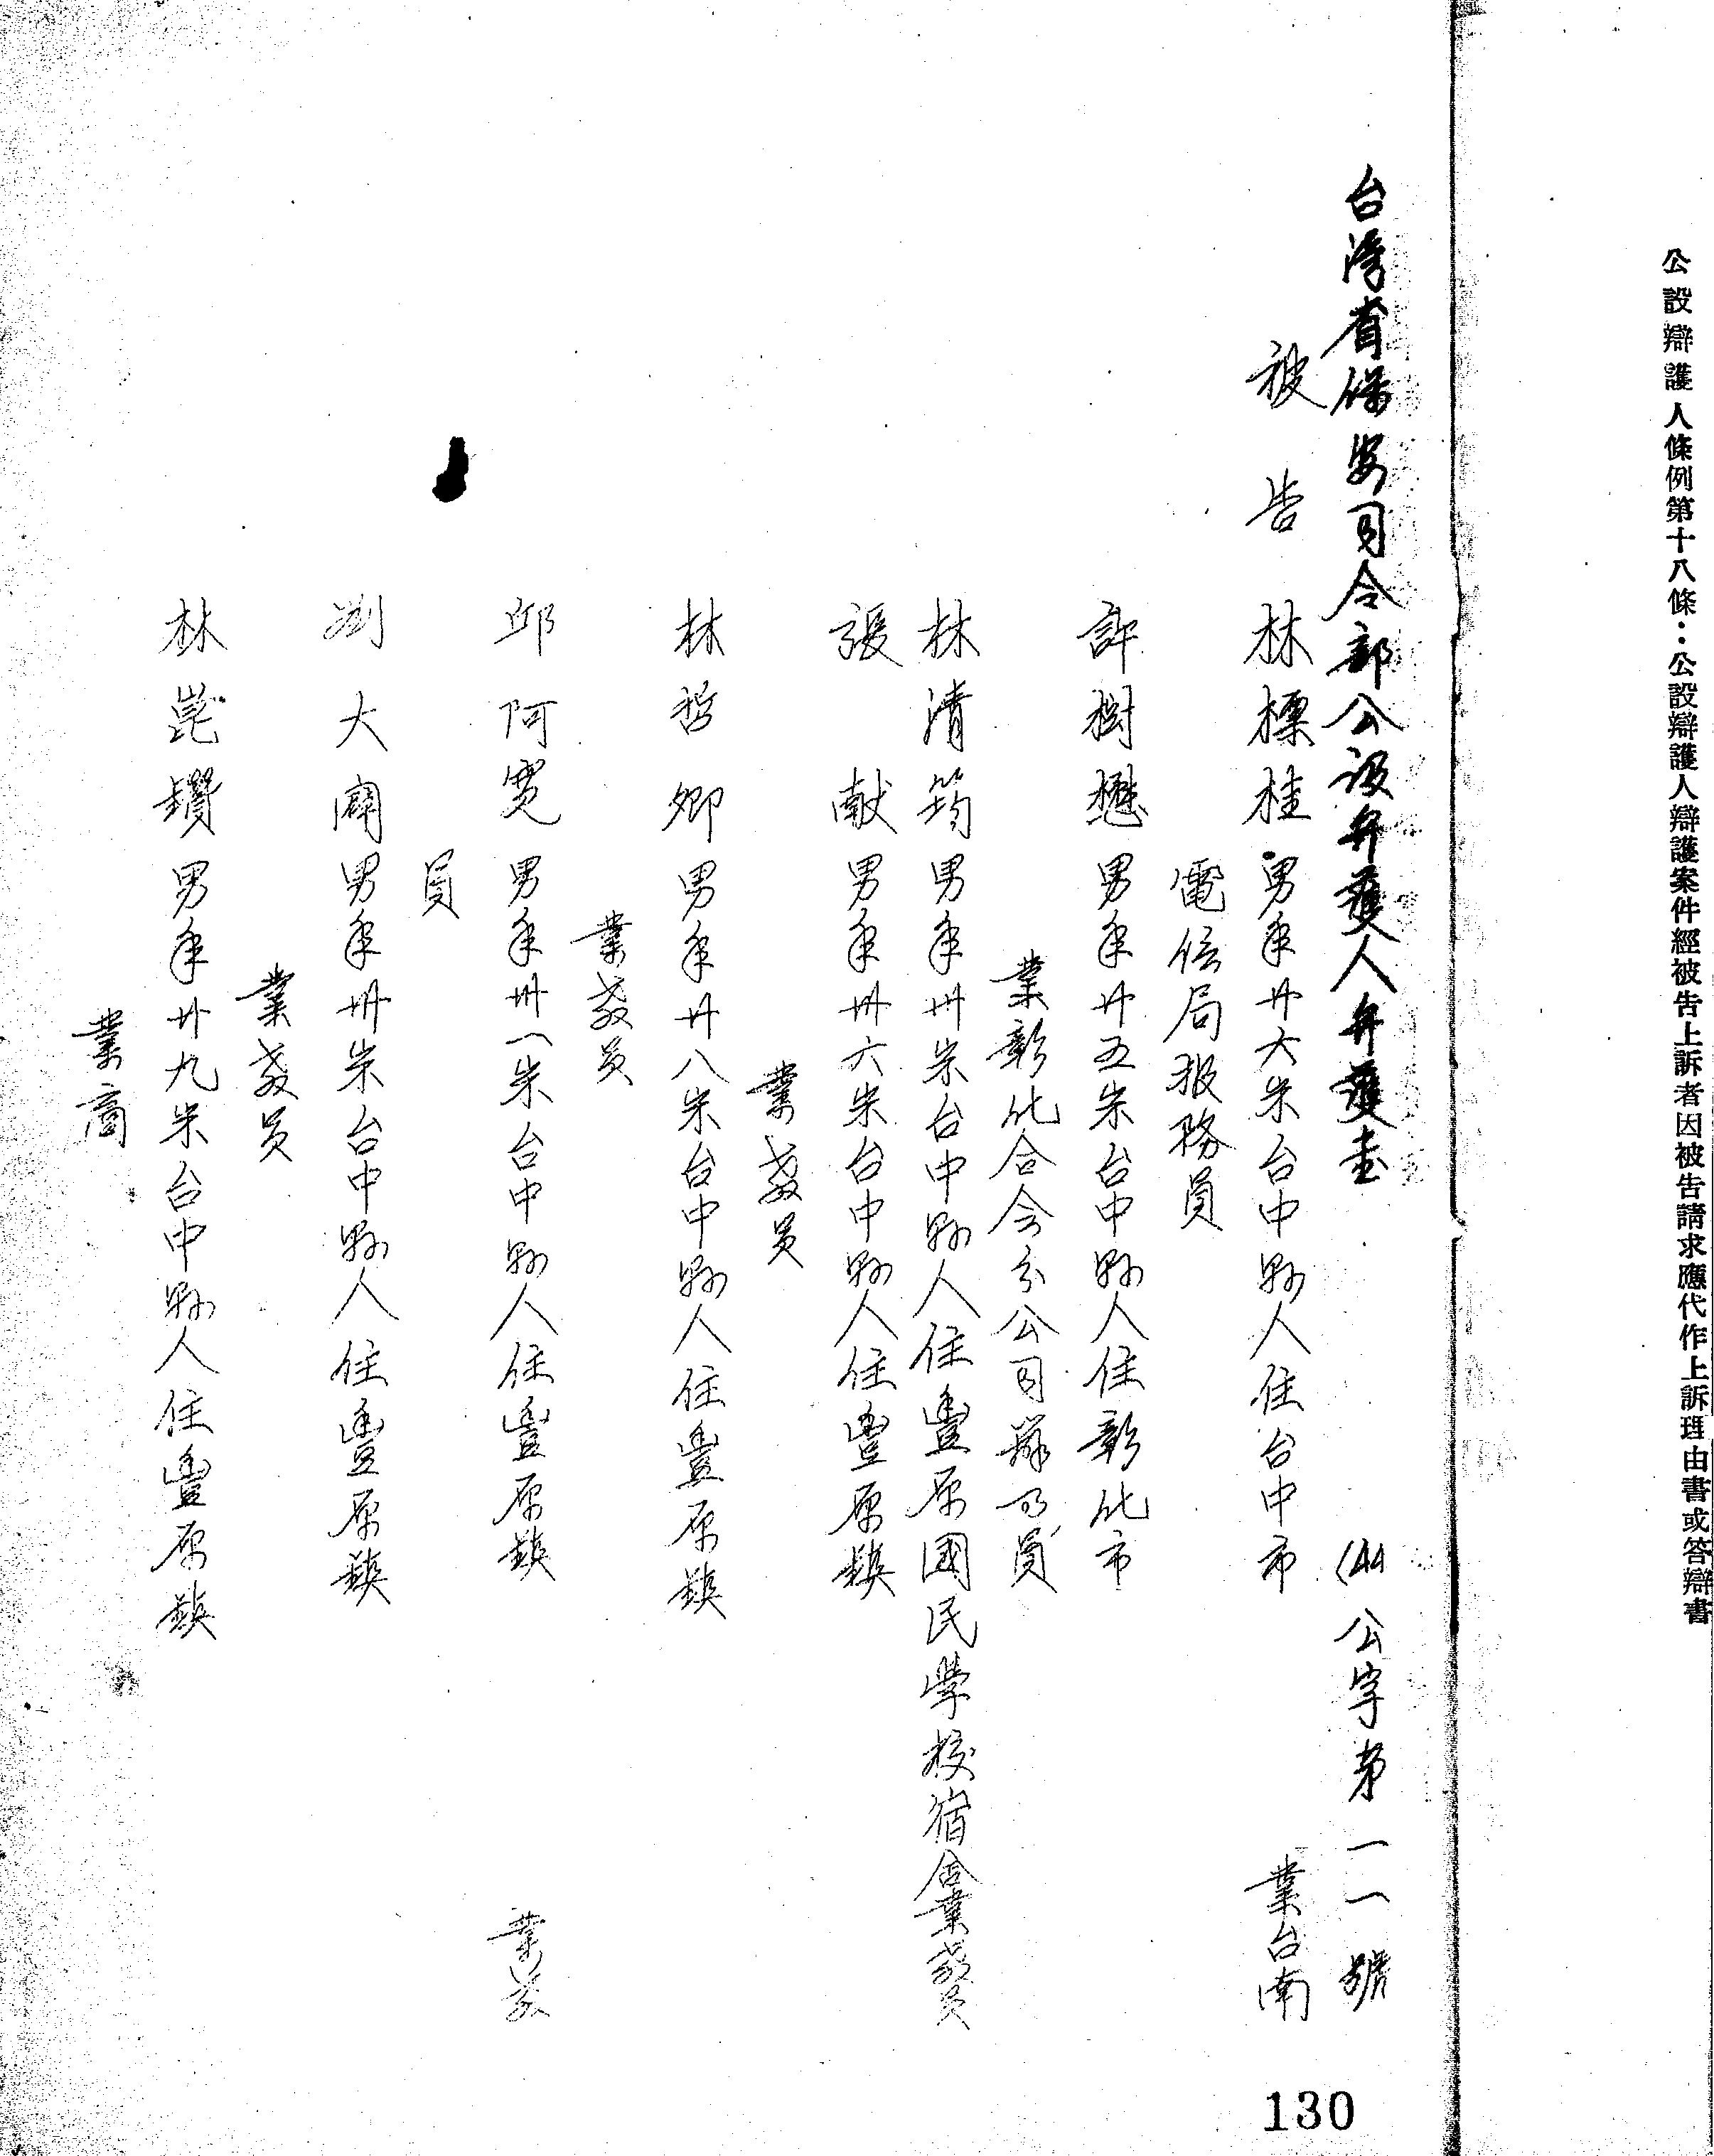 公設辯護人條例第十八條:公設辯護人辯護案件經被告上訴者因被告請求應代作上訴理由書或答辯書
台湾省保安司令部公設弁護人弁護書 (44)公字第一一號
被告 林標桂 男年廿六岁台中縣人住台中市 業台南
電信局报務員
許樹懋 男年廿五岁台中縣人住彰化市
業彰化合会分公司辦事員
林清筠 男年卅岁台中縣人住豐原國民學校宿舍業教員
張献 男年卅六岁台中縣人住豐原鎮
業教員
林哲卿 男年廿八岁台中縣人住豐原鎮
業教員
邱阿寛 男年卅一岁台中縣人住豐原鎮 業教
員
劉大 男年卅岁台中縣人住豐原鎮
業教員
林崑鑽 男年廿九岁台中縣人住豐原鎮
業商
130